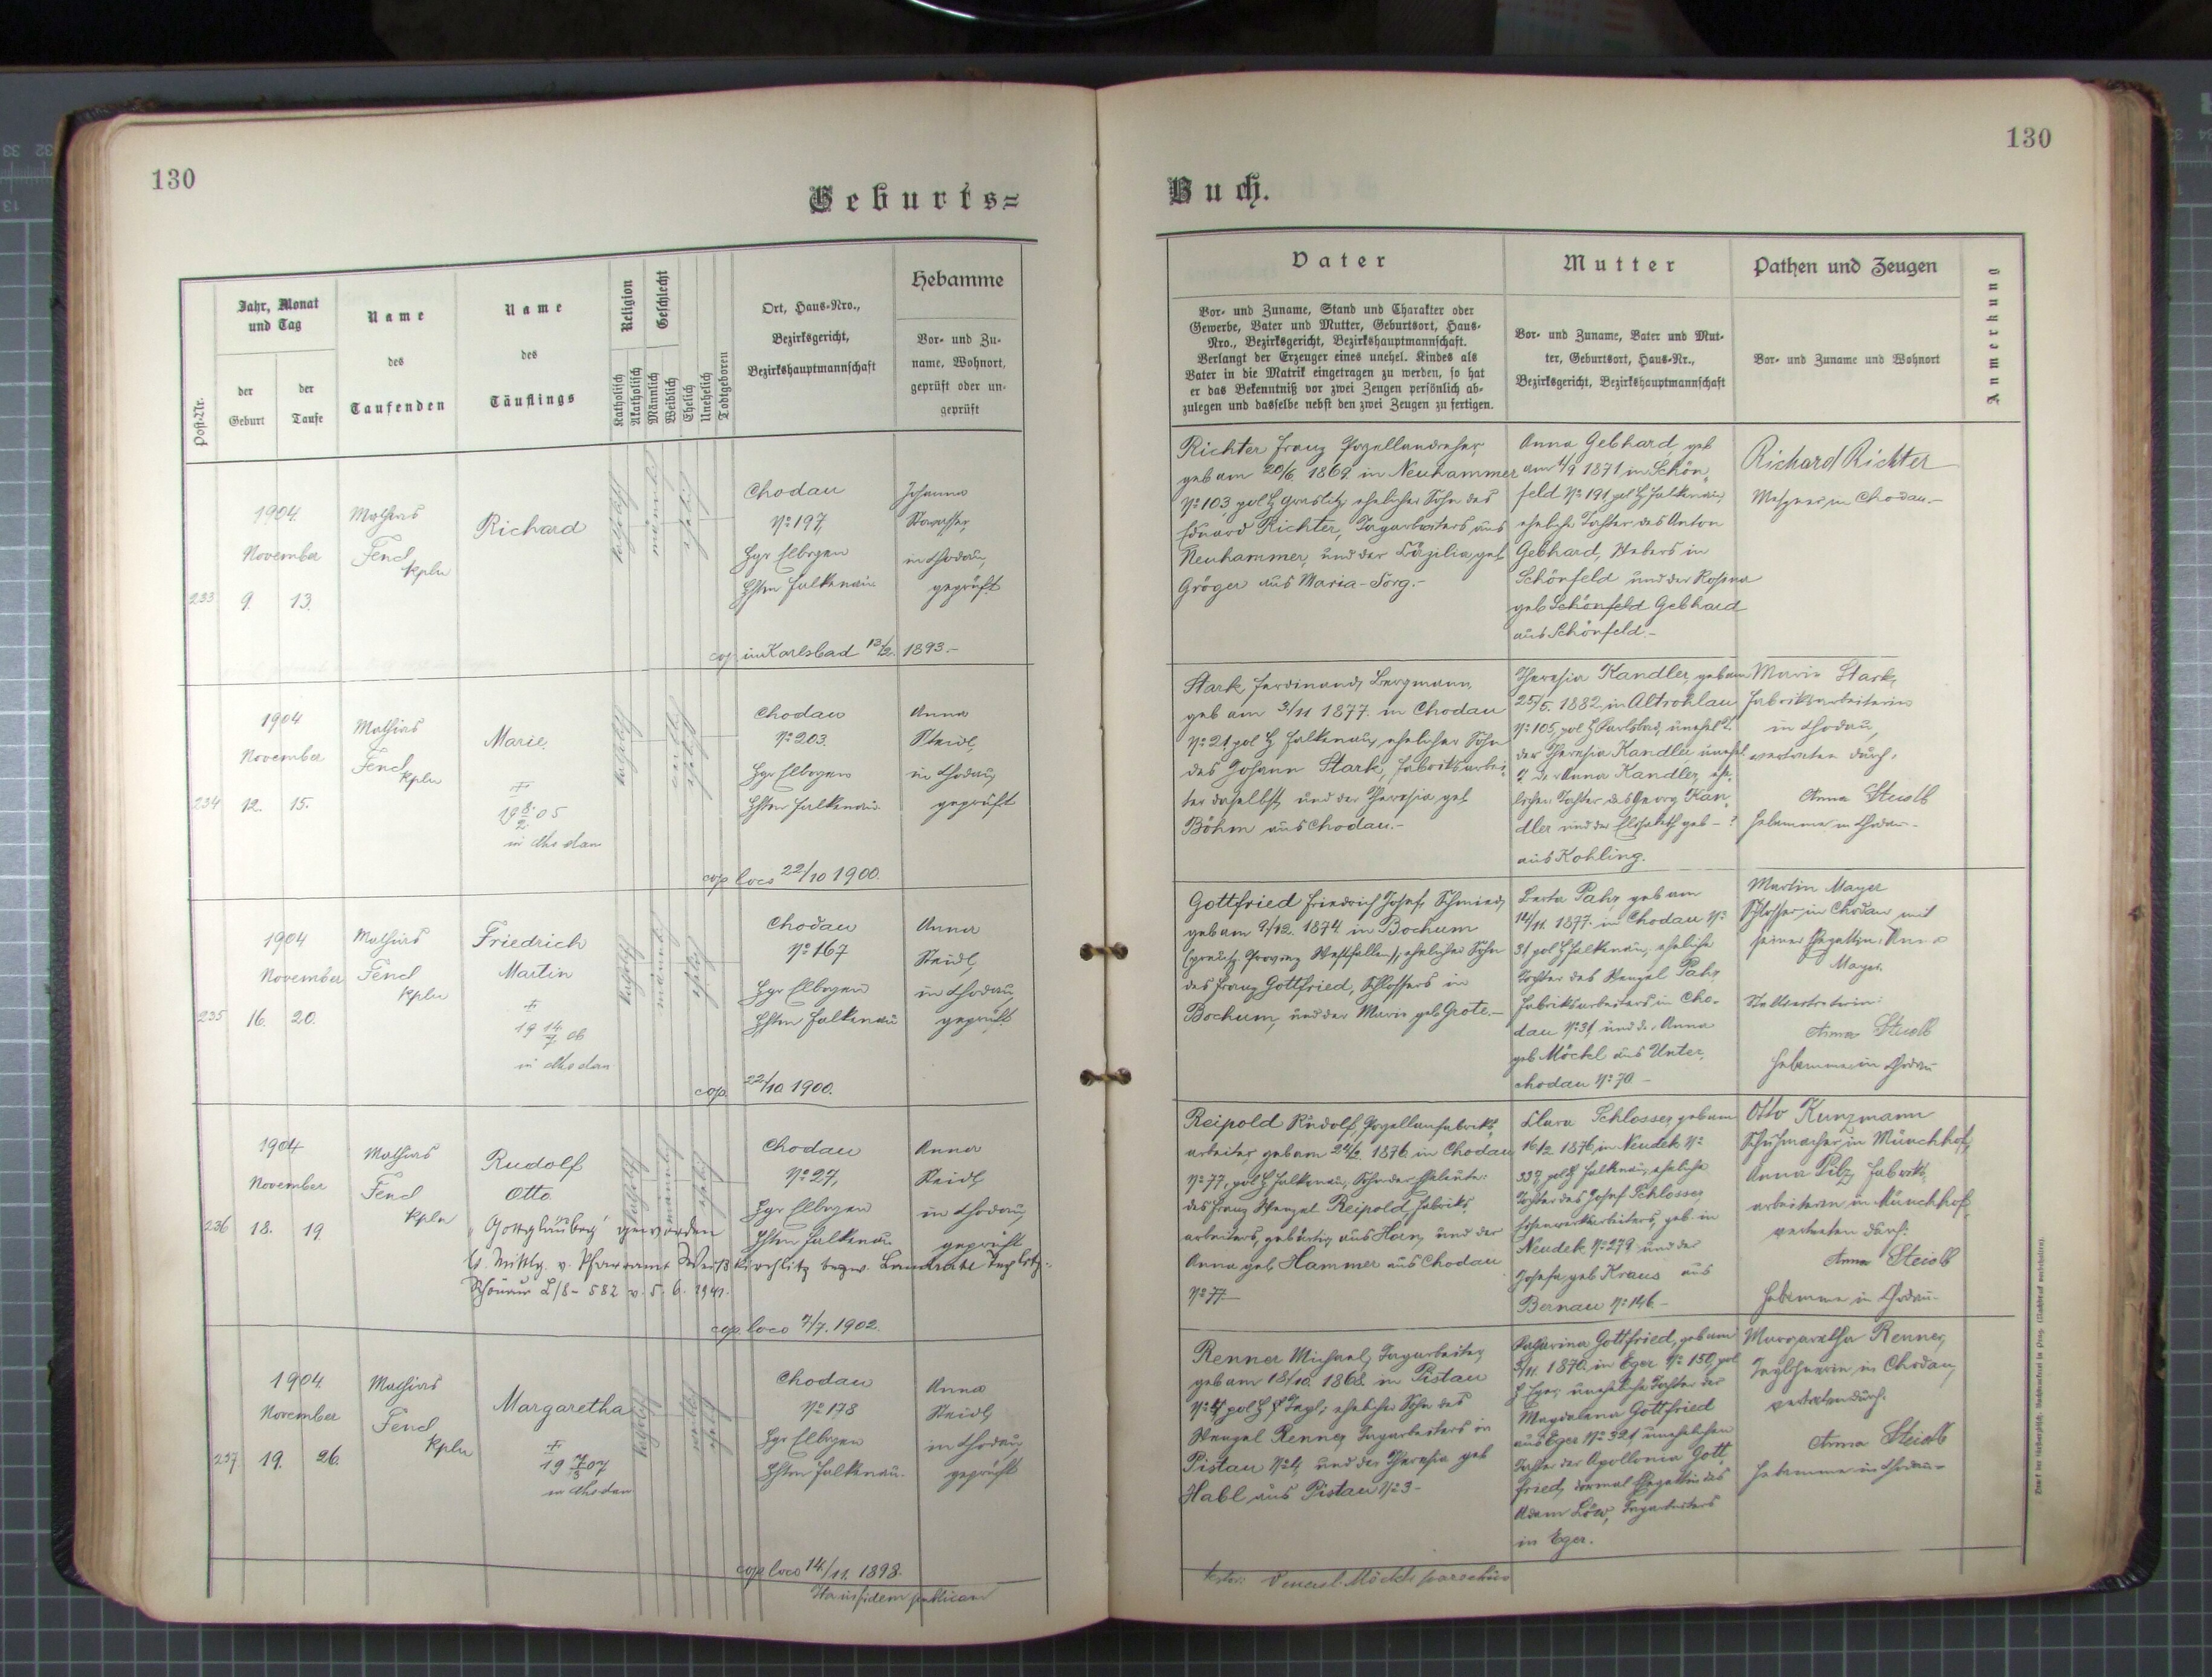 130
Geburts=
Post-Nr.
Jahr, Monat
und Tag
der
Geburt
der
Taufe
Name
des
Taufenden
Name
des
Täuflings
Religion
Katholisch
Akatholisch
Geschlecht
Männlich
Weiblich
Ehelich
Unehelich
Todtgeboren
Ort, Haus-Nro.,
Bezirksgericht,
Bezirkshauptmannschaft
Hebamme
Vor- und Zu-
name, Wohnort,
geprüft oder un-
geprüft
233
1904.
November
9. 13.
Mathias
Fencl
Kpln
Richard
katholisch
männlich
ehelich
Chodau
No 197,
Bgr Elbogen
Bhm Falkenau
Johanna
in Chodau,
geprüft
cop. in Karlsbad 1893.-
234
1904
November
12. 15.
Mathias
Fencl
Kpln
Marie.
†
19 8/2 05
in Chodau
Chodau
No 203.
Bgr Elbogen
Bhm Falkenau
Anna
Steidl,
in Chodau,
geprüft
cop. loco 22/10 1900.
235
1904
November
16. 20.
Mathias
Fencl
Kpln
Friedrich
Martin
†
19 14/7 06
in Chodau
Chodau
No 167
Bgr Elbogen
Bhm Falkenau
Anna
Steidl,
in Chodau,
geprüft
cop. 22/10 1900.
236
1904
November
18. 19
Mathias
Fencl
Kpln
Rudolf
Otto
"Gottgläubig" geworden
lt. Mittlg. v. Pfarramt Weißkirchlitz bezw. Landrate Teplitz-
Schönau L/8 - 582 v. 5. 6. 1941.
Chodau
No 27,
Bgr Elbogen
Bhm Falkenau
Anna
Steidl,
in Chodau,
geprüft
cop. loco 7/7. 1902.
237.
1904.
November
19. 26.
Mathias
Fencl
Kpln
Margaretha
†
19 7/3 07
in Chodau
Chodau
No 178
Bgr Elbogen
Bhm Falkenau.
Anna
Steidl,
in Chodau,
geprüft
cop. loco 14./11. 1898.
130
Buch.
Vater
Vor- und Zuname, Stand und Charakter oder
Gewerbe, Vater und Mutter, Geburtsort, Haus-
Nro., Bezirksgericht, Bezirkshauptmannschaft.
Verlangt der Erzeuger eines unehel. Kindes als
Vater in die Matrik eingetragen zu werden, so hat
er das Bekenntniß vor zwei Zeugen persönlich ab-
zulegen und dasselbe nebst den zwei Zeugen zu fertigen.
Mutter
Vor- und Zuname, Vater und Mut-
ter, Geburtsort, Haus-Nr.,
Bezirksgericht, Bezirkshauptmannschaft
Pathen und Zeugen
Vor- und Zuname und Wohnort
Anmerkung
Richter Franz Porzellandreher,
geb am 20/6. 1869. in Neuhammer
No 103 pol B Graslitz, ehelicher Sohn des
Eduard Richter, Tagarbeiters aus
Neuhammer, und der Cäzilia, geb
Gröger aus Maria-Sorg.-
Anna Gebhard, geb
am 4/9 1871. in Schön-
feld No 191, pol B Falkenau,
eheliche Tochter des Anton
Gebhard, Webers in
Schönfeld und der Rosina
geb Schönfeld Gebhard
aus Schönfeld.-
Richard Richter
Metzger in Chodau.-
Stark, Ferdinand, Bergmann,
geb am 3/11 1877. in Chodau
No 21 pol B Falkenau, ehelicher Sohn
des Johann Stark, Fabriksarbei-
ter daselbst, und der Theresia geb
Böhm aus Chodau.-
Theresia Kandler, geb am
25/5. 1882, in Altrohlau
No 105, pol B Karlsbad, unehel T.
der Theresia Kandler unehel
T. der Anna Kandler, ehe-
lichen Tochter des Georg Kan-
dler und der Elisabeth geb - ?
aus Kohling.
Marie Stark,
Fabriksarbeiterin
in Chodau,
vertreten durch:
Anna Steidl
Hebamme in Chodau-
Gottfried Friedrich Josef, Schmied,
geb am 9/12. 1874 in Bochum
(preuß. Provinz Westfalen), ehelicher Sohn
des Franz Gottfried, Schlossers in
Bochum, und der Marie geb Grote.-
Berta Pahr, geb am
14/11. 1877. in Chodau No
31 pol B Falkenau, eheliche
Tochter des Wenzel Pahr,
Fabriksarbeiters in Cho-
dau No 31 und d. Anna
geb Möckl aus Unter-
chodau No 70 -
Martin Mayer
Schlosser in Chodau mit
seiner Ehegattin Anna
Mayer.
Stellvertreterin:
Anna Steidl
Hebamme in Chodau
Reipold Rudolf, Porzellanfabriks-
arbeiter, geb am 22/2. 1876 in Chodau
No 77, pol B Falkenau, Sohn der Eheleute:
des Franz Wenzel Reipold, Fabriks-
arbeiters, gebürtig aus Horn, und der
Anna geb Hammer aus Chodau
No 77 -
Clara Schlosser, geb am
16/2 1876, in Neudek No
337, pol B Falkenau, eheliche
Tochter des Josef Schlosser,
geb. in
Neudek No 279 und der
Josefa, geb Kraus aus
Bernau No 146 -
Otto Kunzmann
Schuhmacher in Münchhof,
Anna Pilz, Fabriks-
arbeiterin in Münchhof,
vertreten durch:
Anna Steidl
Hebamme in Chodau-
Renner Michael, Tagarbeiter,
geb am 18/10. 1868. in Pistau
No 4, pol B Tepl; ehelicher Sohn des
Wenzel Renner, Tagarbeiters in
Pistau No 4, und der Theresia geb
Habl aus Pistau No 3 -
Katharina Gottfried, geb am
3/11. 1870. in Eger No 150, pol
B Eger, uneheliche Tochter der
Magdalena Gottfried
aus Eger No 321, unehelichen
Tochter der Apollonia Gott-
fried, dermal Ehegattin des
Adam Löw, Tagarbeiters
in Eger.
Margaretha Renner,
in Chodau,
vertreten durch:
Anna Steidl
Hebamme in Chodau-